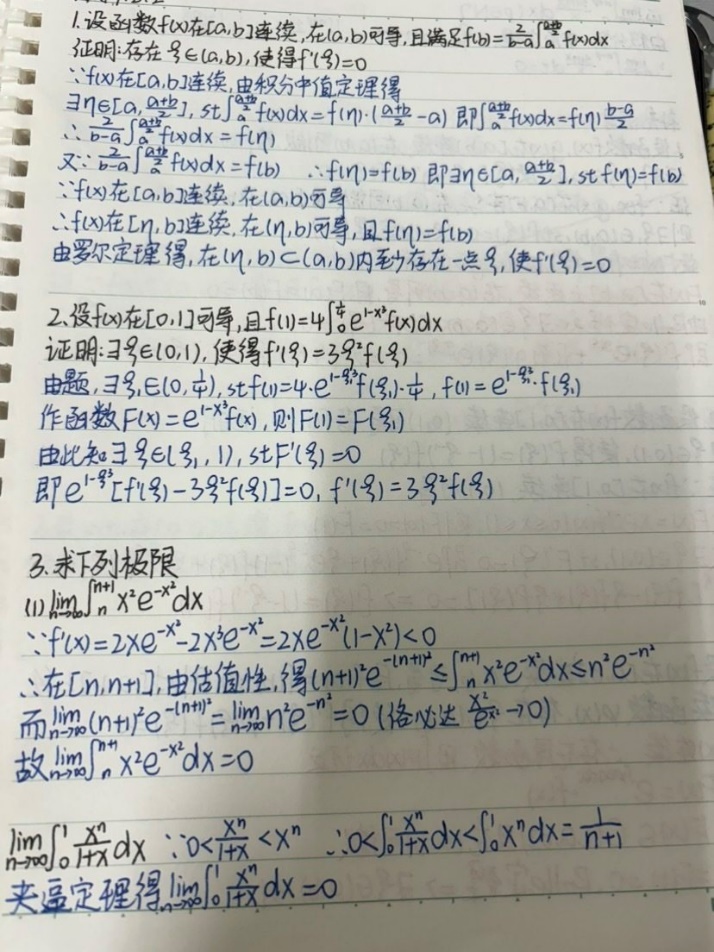 1.设函数f(x)在[a,b]连续,在(a,b)可导,且满足f(b)=2/(b-a)∫_a^((a+b)/2) f(x)dx
证明:存在ξ∈(a,b),使得f'(ξ)=0
∵f(x)在[a,b]连续,由积分中值定理得
∃η∈[a,(a+b)/2],st∫_a^((a+b)/2) f(x)dx=f(η)·((a+b)/2-a) 即∫_a^((a+b)/2) f(x)dx=f(η)(b-a)/2
∴2/(b-a)∫_a^((a+b)/2) f(x)dx=f(η)
又∵2/(b-a)∫_a^((a+b)/2) f(x)dx=f(b) ∴f(η)=f(b) 即∃η∈[a,(a+b)/2],st f(η)=f(b)
∵f(x)在[a,b]连续,在(a,b)可导
∴f(x)在[η,b]连续,在(η,b)可导,且f(η)=f(b)
由罗尔定理得,在(η,b)⊂(a,b)内至少存在一点ξ,使f'(ξ)=0
2.设f(x)在[0,1]可导,且f(1)=4∫_0^(1/4) e^(1-x³)f(x)dx
证明:∃ξ∈(0,1),使得f'(ξ)=3ξ²f(ξ)
由题,∃ξ₁∈(0,1/4),st f(1)=4·e^(1-ξ₁³)f(ξ₁)·1/4, f(1)=e^(1-ξ₁³)·f(ξ₁)
作函数F(x)=e^(1-x³)f(x),则F(1)=F(ξ₁)
由此知∃ξ∈(ξ₁,1),st F'(ξ)=0
即e^(1-ξ³)[f'(ξ)-3ξ²f(ξ)]=0, f'(ξ)=3ξ²f(ξ)
3.求下列极限
(1) lim_(n→∞)∫_n^(n+1) x²e^(-x²)dx
∵f'(x)=2xe^(-x²)-2x³e^(-x²)=2xe^(-x²)(1-x²)<0
∴在[n,n+1],由估值性,得(n+1)²e^(-(n+1)²)≤∫_n^(n+1) x²e^(-x²)dx≤n²e^(-n²)
而lim_(n→∞)(n+1)²e^(-(n+1)²)=lim_(n→∞)n²e^(-n²)=0(洛必达 x²/e^(x²)→0)
故lim_(n→∞)∫_n^(n+1) x²e^(-x²)dx=0
lim_(n→∞)∫_0^1 x^n/(1+x) dx ∵0<x^n/(1+x)<x^n ∴0<∫_0^1 x^n/(1+x) dx<∫_0^1 x^n dx=1/(n+1)
夹逼定理得lim_(n→∞)∫_0^1 x^n/(1+x) dx=0